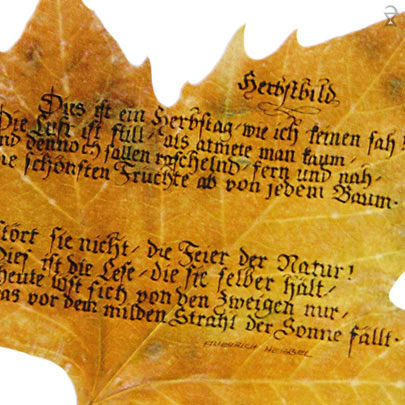 Herbstbild
Dies ist ein Herbstag, wie ich keinen sah!
Die Luft ist still, als atmete man kaum,
nd dennoch fallen raschelnd, fern und nah,
ie schönsten Früchte ab von jedem Baum.
stört sie nicht, die Feier der Natur!
Dies ist die Lese, die sie selber hält,
heute löst sich von den Zweigen nur,
as vor dem milden Strahl der Sonne fällt.
FRIEDRICH HEBBEL